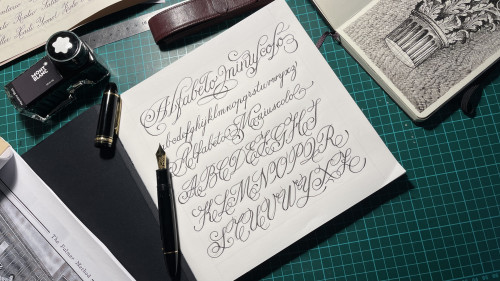 MONT
BLANC
Alfabeto minuscolo
abcdefghijklmnopqrstuvwxyz
Alfabeto Maiuscolo
ABCDEFGHIJ
KLMNOPQR
STUVWXYZ
The Palmer Method